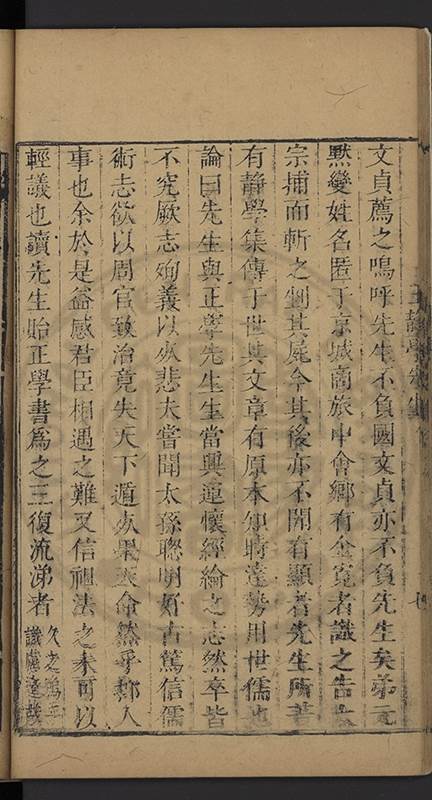 文貞薦之嗚呼先生不負國文貞亦不負先生矣弟元
黙變姓名匿于京城商旅中會鄉有金寬者識之告
宗捕而斬之剉其屍今其後亦不聞有顯者先生所著
有靜學集傳于世其文章有原本知時達勢用世儒也
論曰先生與正學先生生當興運懷經綸之志然卒皆
不究厥志殉義以歿悲夫嘗聞太孫聰明好古篤信儒
術志欲以周官致治竟失天下遁歿果天命然乎鄭人
事也余於是益感君臣相遇之難又信祖法之未可以
輕議也讀先生貽正學書為之三復流涕者
久之嗚乎
識微達哉